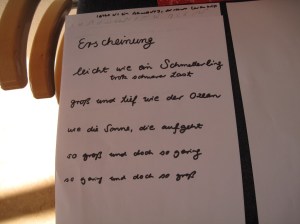 Erscheinung
leicht wie ein Schmetterling
trotz schwerer Last
groß und tief wie der Ozean
wie die Sonne, die aufgeht
so groß und doch so gering
so gering und doch so groß